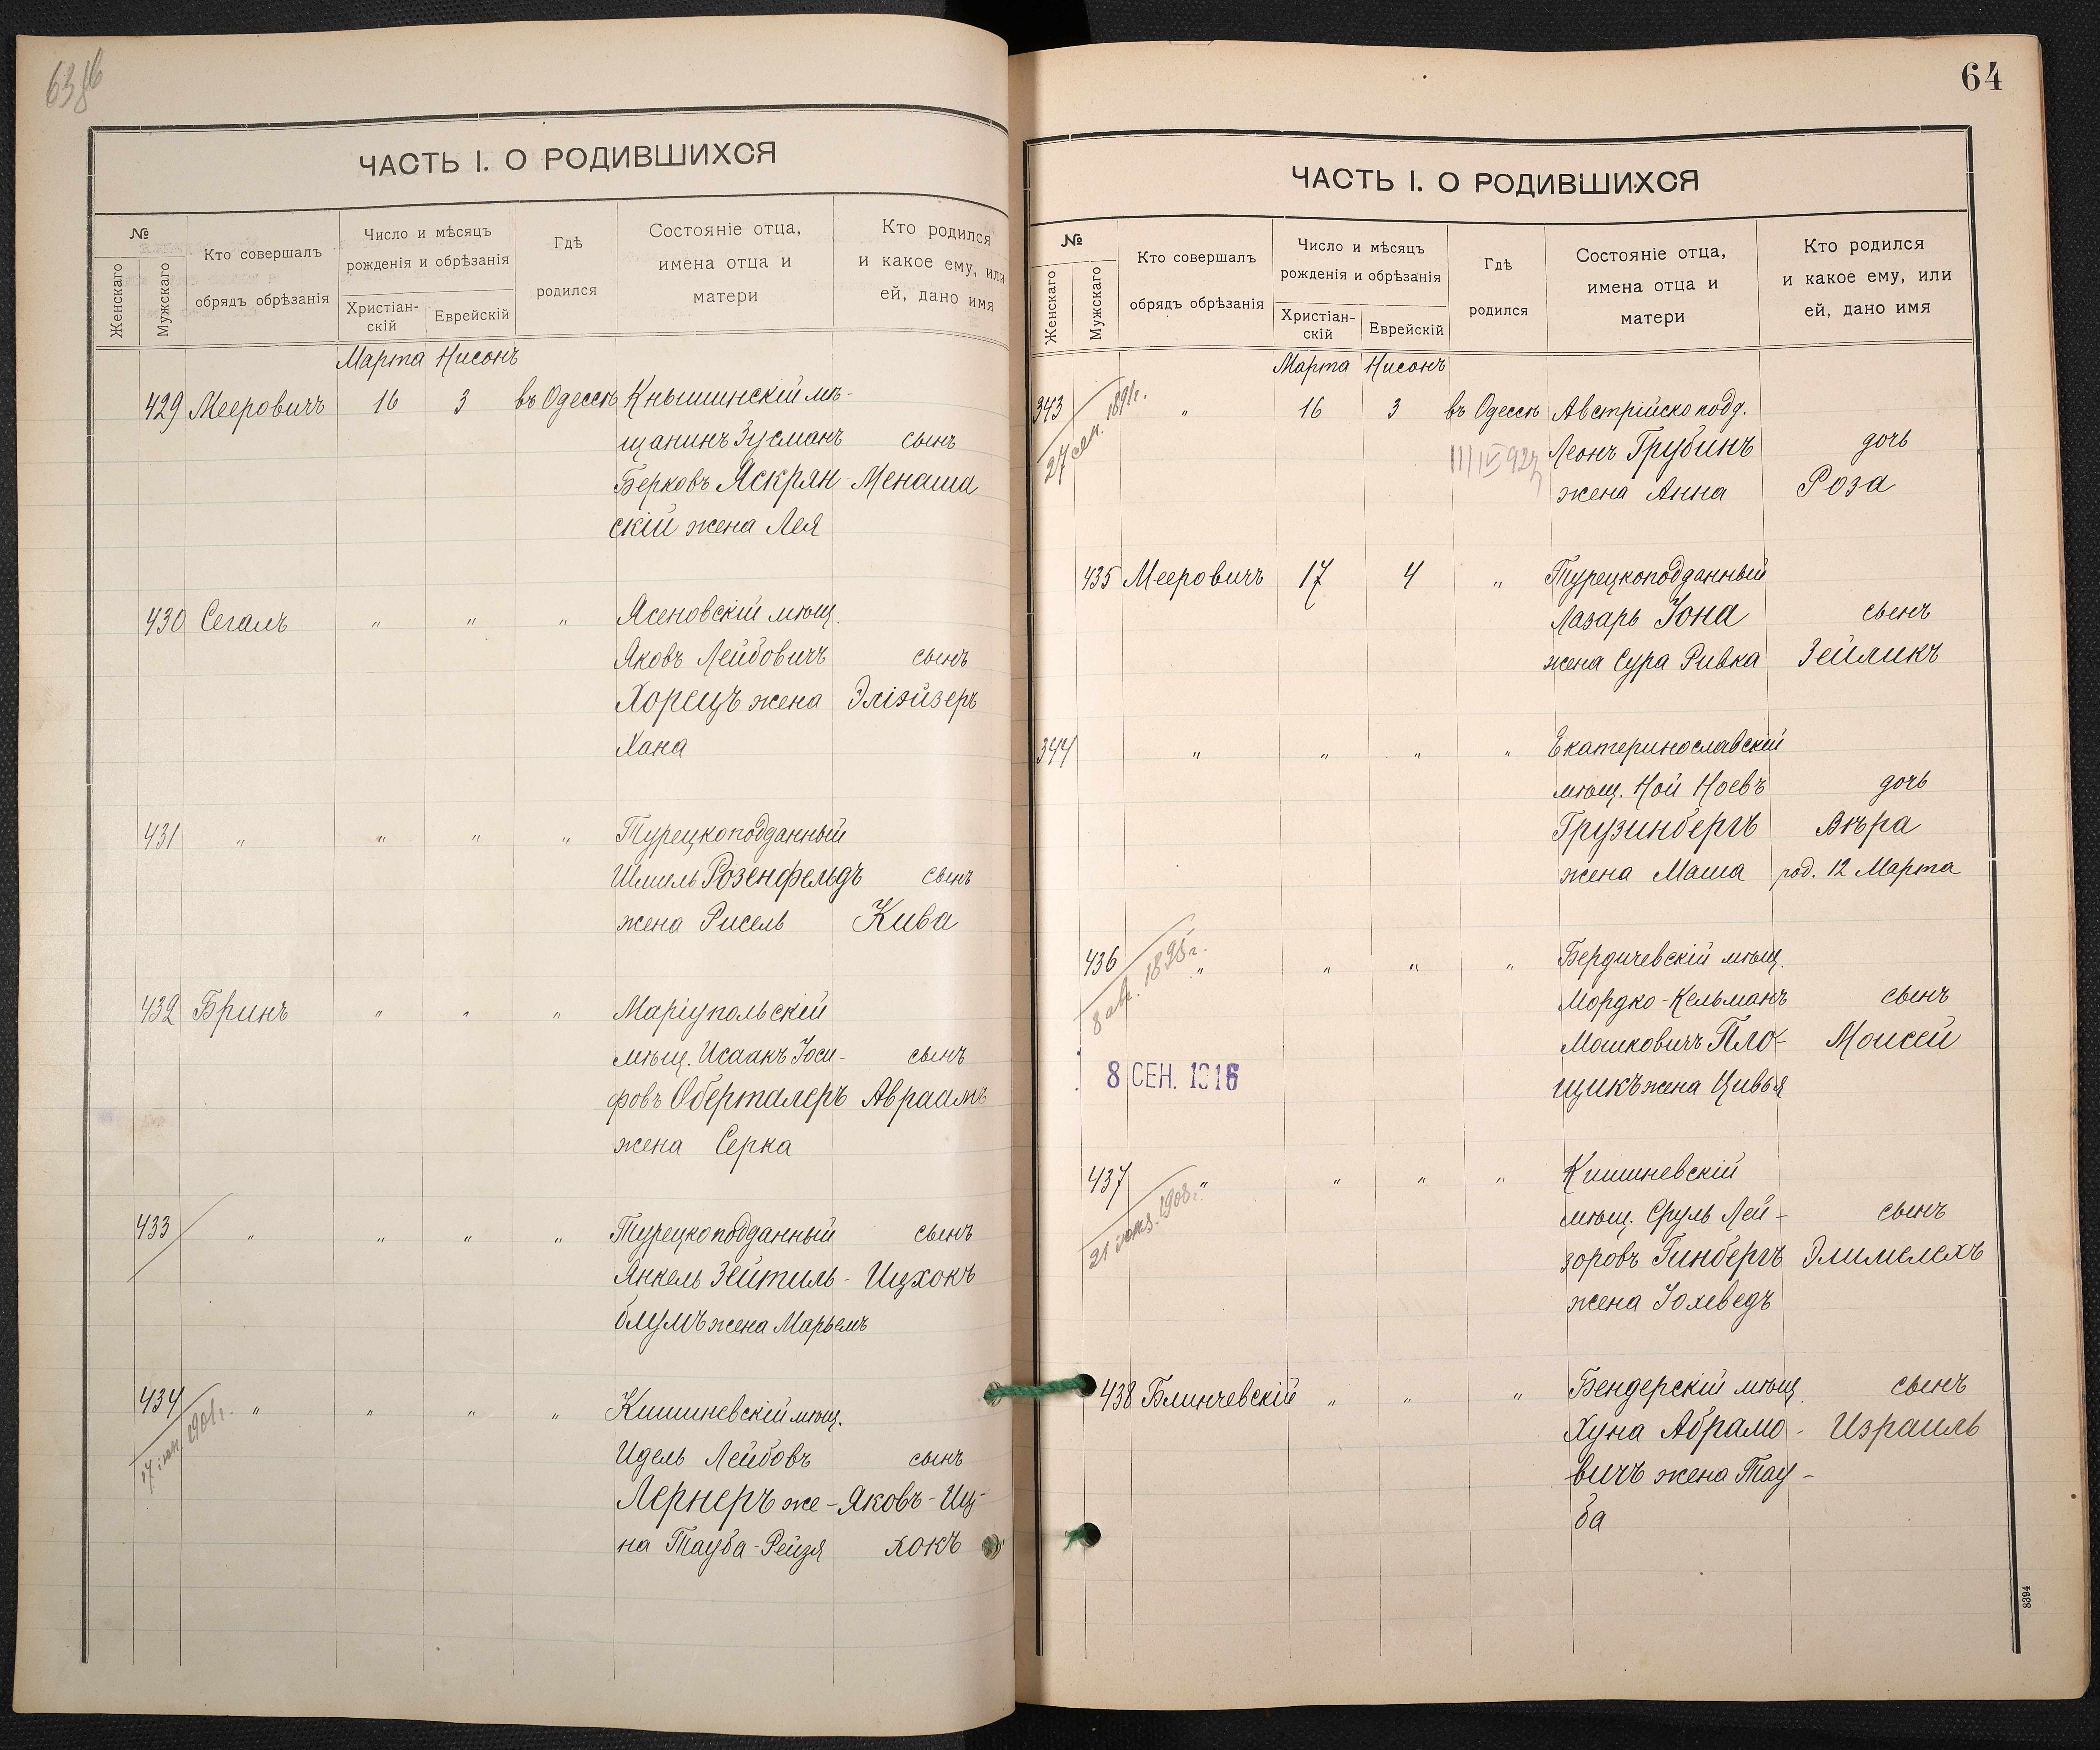 63об
ЧАСТЬ I. О РОДИВШИХСЯ
№
Женскаго
Мужскаго
Кто совершалъ
обрядъ обрѣзанія
Число и мѣсяцъ
рожденія и обрѣзанія
Христіан-
скій
Еврейскій
Гдѣ
родился
Состояніе отца,
имена отца и
матери
Кто родился
и какое ему, или
ей, дано имя
Марта Нисонъ
429 Мееровичъ 16 3 въ Одессѣ Кнышинскій мѣ-
щанинъ Зусманъ сынъ
Берковъ Яскрян- Менаша
скій жена Лея
430 Сегалъ " " " Ясеновскій мѣщ.
Яковъ Лейбовичъ сынъ
Хорецъ жена Эліэйзеръ
Хана
431 " " " " Турецкоподданный
Шмиль Розенфельдъ сынъ
жена Рисель Кива
432 Бринъ " " " Маріупольскій
мѣщ. Исаакъ Іоси- сынъ
фовъ Оберталеръ Авраамъ
жена Серка
433 " " " " Турецкоподданный сынъ
Янкель Зейтиль- Ицхокъ
блумъ жена Марьемъ
434 " " " " Кишиневскій мѣщ.
17 іюн. 1901г.
Идель Лейбовъ сынъ
Лернеръ же- Яковъ-Иц-
на Тауба-Рейзя хокъ
64
ЧАСТЬ I. О РОДИВШИХСЯ
№
Женскаго
Мужскаго
Кто совершалъ
обрядъ обрѣзанія
Число и мѣсяцъ
рожденія и обрѣзанія
Христіан-
скій
Еврейскій
Гдѣ
родился
Состояніе отца,
имена отца и
матери
Кто родился
и какое ему, или
ей, дано имя
Марта Нисонъ
343 " 16 3 въ Одессѣ Австрійскоподд.
27 сен.
III/IV 927
Леонъ Грубинъ дочь
жена Анна Роза
435 Мееровичъ 17 4 " Турецкоподданный
Лазарь Іона сынъ
жена Сура Ривка Зейликъ
344 " " " " Екатеринославскій
мѣщ. Ной Ноевъ дочь
Грузинбергъ Вѣра
жена Маша род. 12 Марта
436 " " " " Бердичевскій мѣщ.
8 авг. 1898г.
Мордко-Кельманъ сынъ
Мошковичъ Пло- Моисей
8 СЕН. 1916
щикъ жена Цивья
437 " " " " Кишиневскій
21 1908г.
мѣщ. Сруль Лей- сынъ
зоровъ Гинбергъ Элимелехъ
жена Іохеведъ
438 Блинчевскій " " " Бендерскій мѣщ. сынъ
Хуна Абрамо- Израиль
вичъ жена Тау-
ба
8394